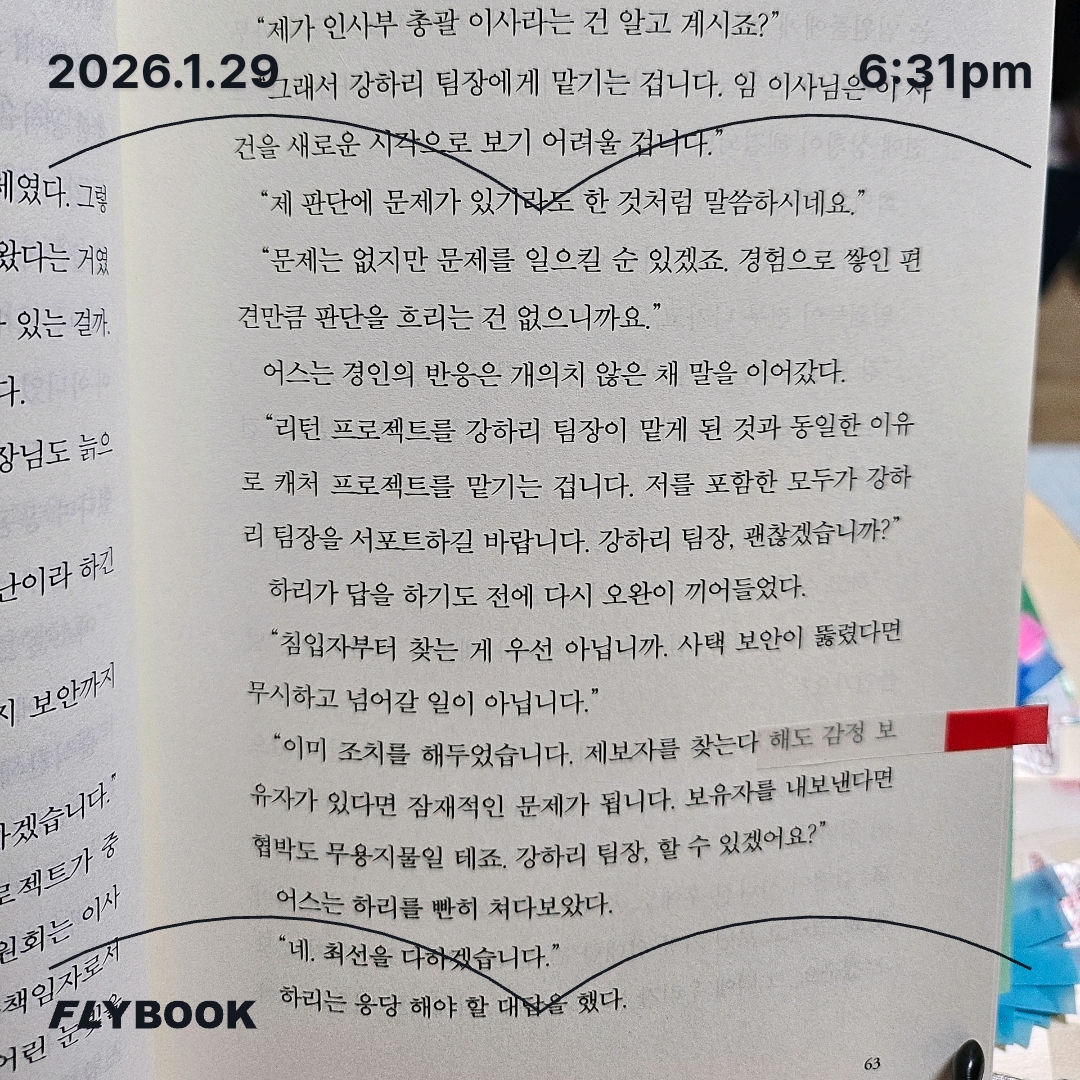 2026.1.29
6:31pm
“제가 인사부 총괄 이사라는 건 알고 계시죠?”
“그래서 강하리 팀장에게 맡기는 겁니다. 임 이사님은 이 사
건을 새로운 시각으로 보기 어려울 겁니다.”
“제 판단에 문제가 있기라도 한 것처럼 말씀하시네요.”
“문제는 없지만 문제를 일으킬 순 있겠죠. 경험으로 쌓인 편
견만큼 판단을 흐리는 건 없으니까요.”
어스는 경인의 반응은 개의치 않은 채 말을 이어갔다.
“리턴 프로젝트를 강하리 팀장이 맡게 된 것과 동일한 이유
로 캐처 프로젝트를 맡기는 겁니다. 저를 포함한 모두가 강하
리 팀장을 서포트하길 바랍니다. 강하리 팀장, 괜찮겠습니까?”
하리가 답을 하기도 전에 다시 오완이 끼어들었다.
“침입자부터 찾는 게 우선 아닙니까. 사택 보안이 뚫렸다면
무시하고 넘어갈 일이 아닙니다.”
“이미 조치를 해두었습니다. 제보자를 찾는다 해도 감정 보
유자가 있다면 잠재적인 문제가 됩니다. 보유자를 내보낸다면
협박도 무용지물일 테죠. 강하리 팀장, 할 수 있겠어요?”
어스는 하리를 빤히 쳐다보았다.
“네. 최선을 다하겠습니다.”
하리는 응당 해야 할 대답을 했다.
63
그렇
왔다는 거였
있는 걸까.
다.
장님도 늙으
난이라 하긴
지 보안까지
하겠습니다.”
로젝트가 중
원회는 이사
책임자로서
어린 눈빛을
FLYBOOK